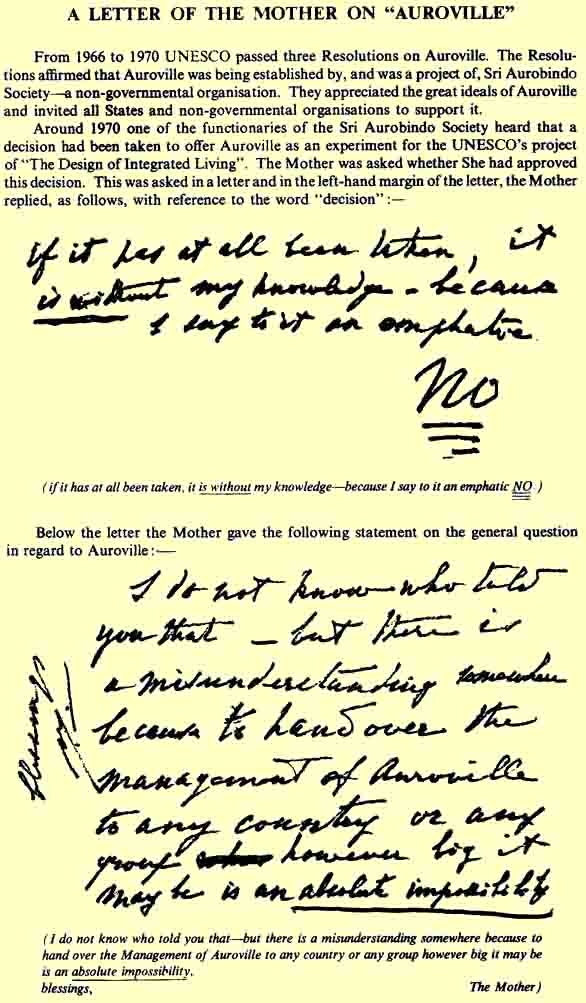 A LETTER OF THE MOTHER ON "AUROVILLE"
From 1966 to 1970 UNESCO passed three Resolutions on Auroville. The Resolu-
tions affirmed that Auroville was being established by, and was a project of, Sri Aurobindo
Society—a non-governmental organisation. They appreciated the great ideals of Auroville
and invited all States and non-governmental organisations to support it.
Around 1970 one of the functionaries of the Sri Aurobindo Society heard that a
decision had been taken to offer Auroville as an experiment for the UNESCO's project
of "The Design of Integrated Living". The Mother was asked whether She had approved
this decision. This was asked in a letter and in the left-hand margin of the letter, the Mother
replied, as follows, with reference to the word "decision":—
if it has at all been taken, it
is without my knowledge - because
I say to it an emphatic
NO
(if it has at all been taken, it is without my knowledge—because I say to it an emphatic NO )
Below the letter the Mother gave the following statement on the general question
in regard to Auroville:—
I do not know who told
you that - but there is
a misunderstanding somewhere
because to hand over the
management of Auroville
to any country or any
group however big it
may be is an absolute impossibility
blessings
(I do not know who told you that—but there is a misunderstanding somewhere because to
hand over the Management of Auroville to any country or any group however big it may be
is an absolute impossibility.
blessings, The Mother)